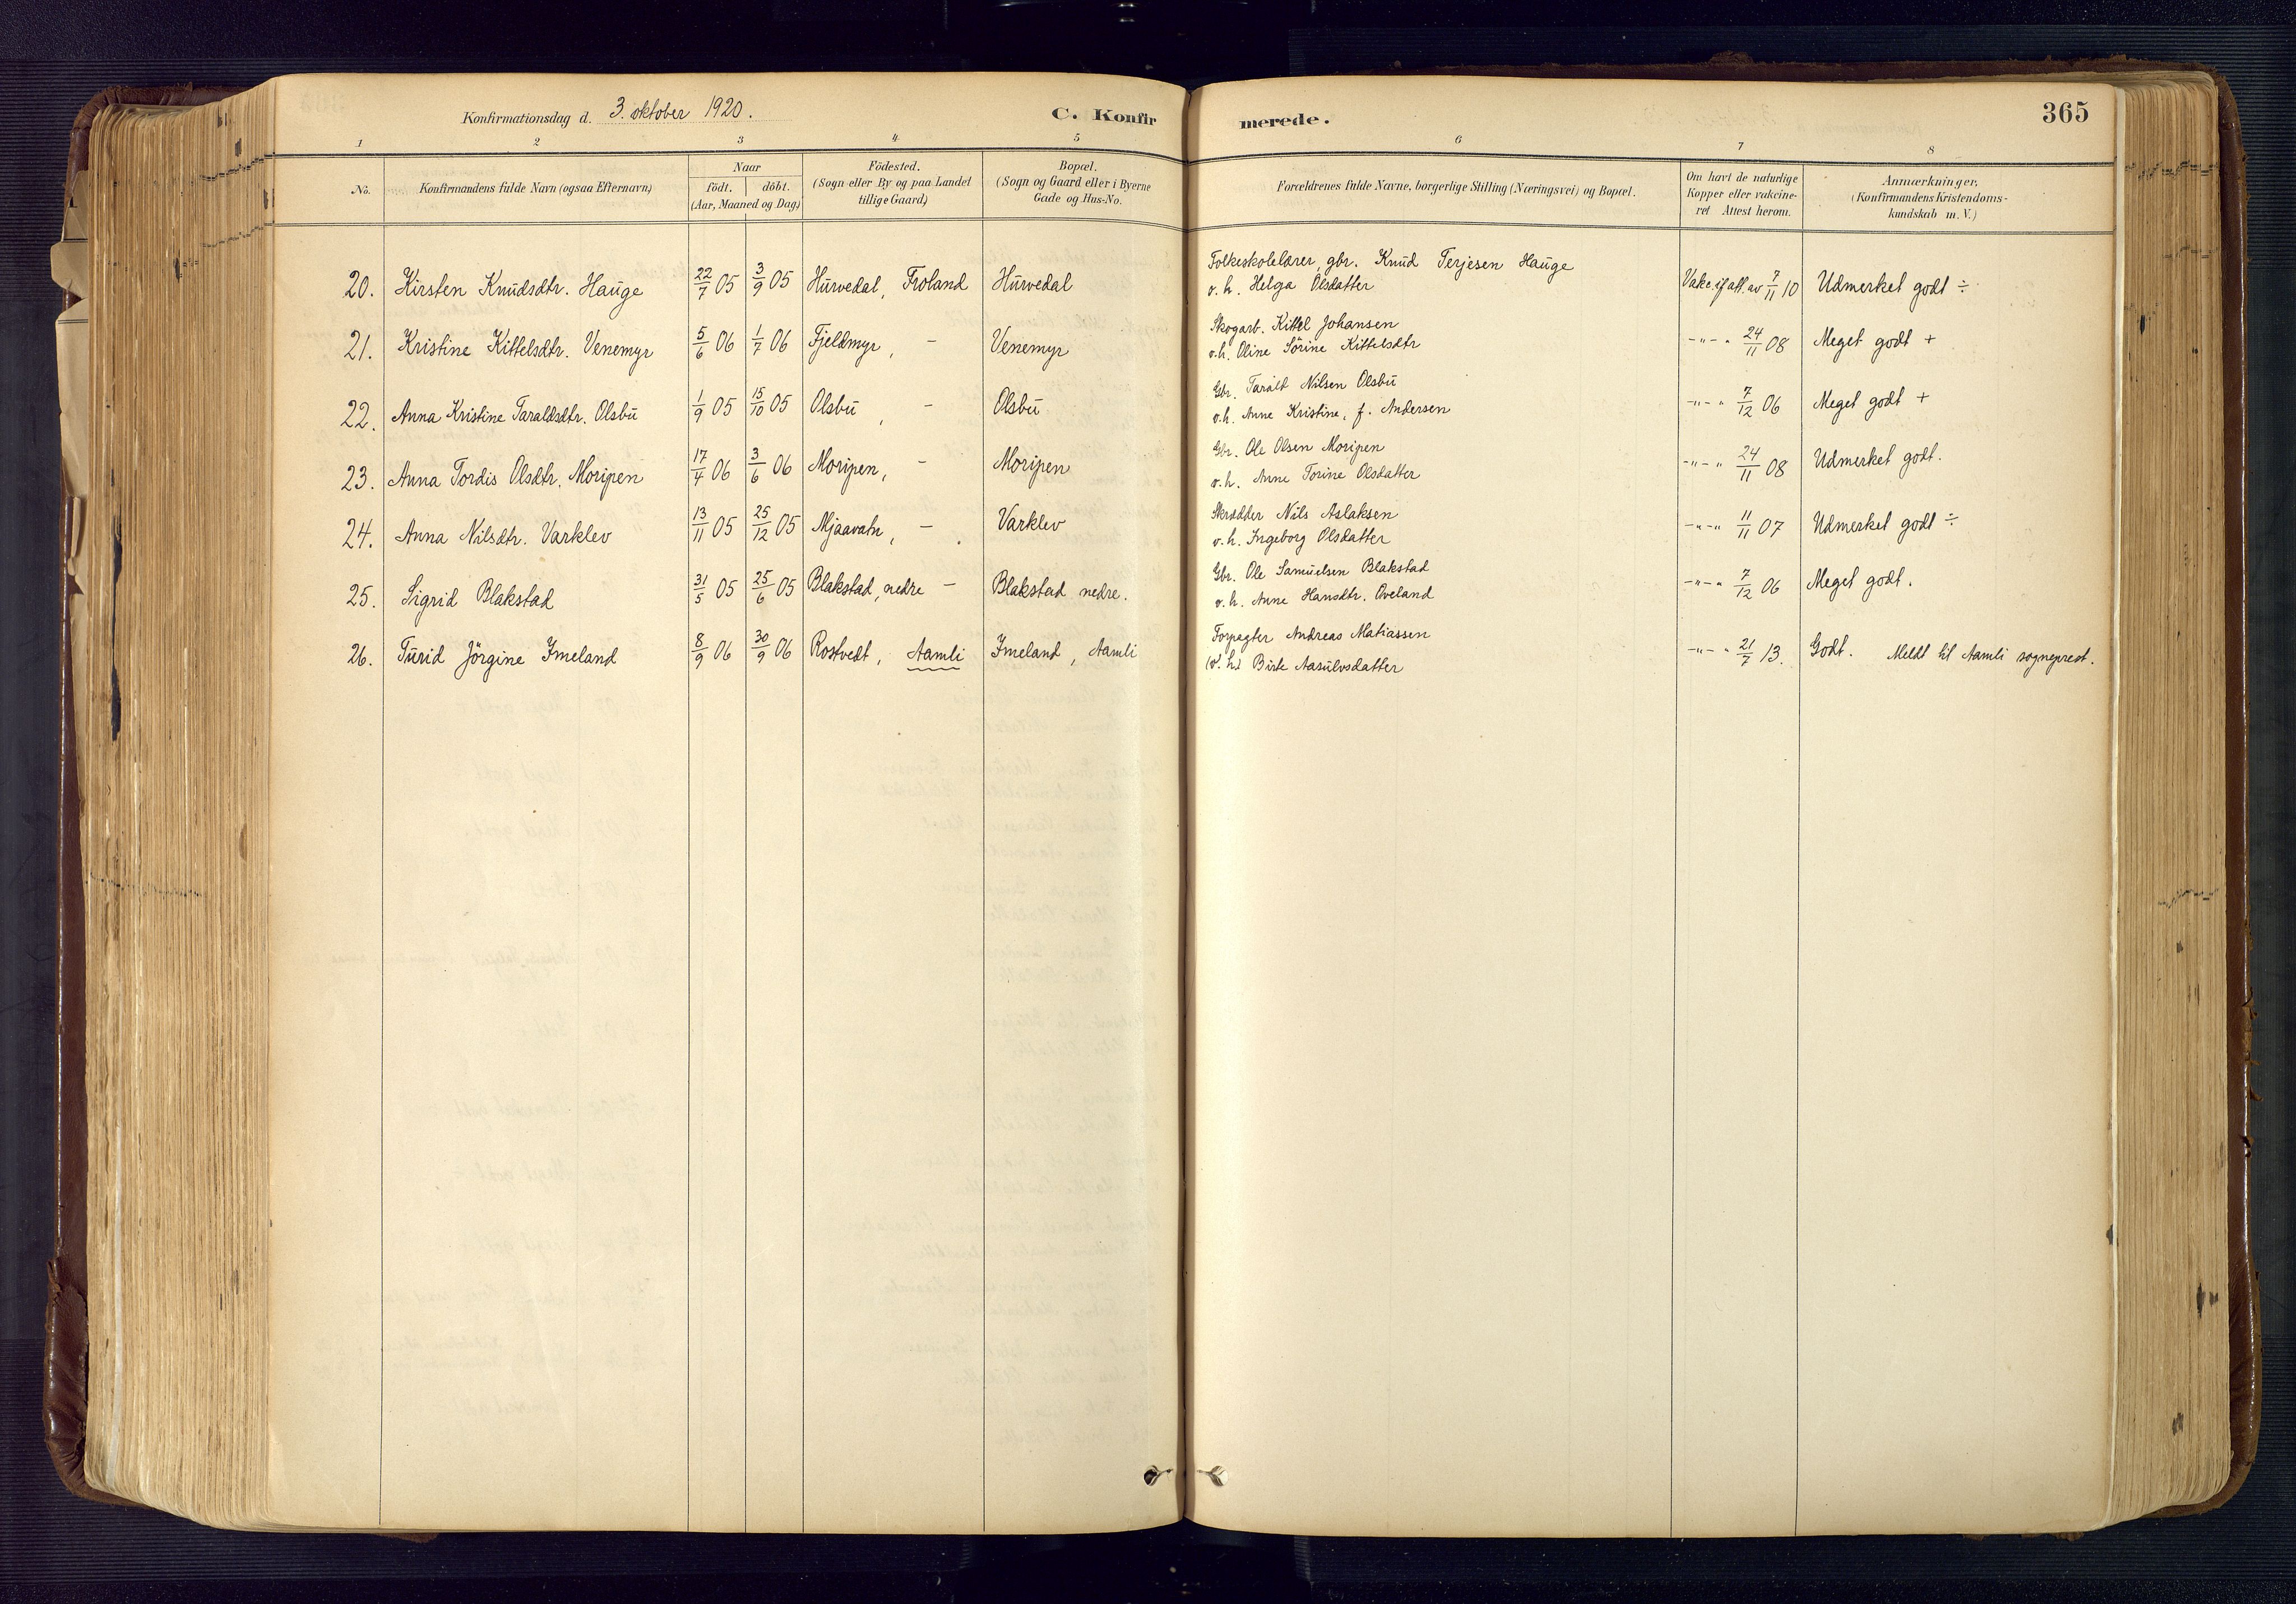 Konfirmationsdag d. 3. oktober 1920.
C. Konfirmerede.
365
1 2 3 4 5 6 7 8
No.
Konfirmandens fulde Navn (ogsaa Efternavn)
Naar
födt. döbt.
(Aar, Maaned og Dag)
Födested.
(Sogn eller By og paa Landet
tillige Gaard)
Bopæl.
(Sogn og Gaard eller i Byerne
Gade og Hus-No.
Forældrenes fulde Navne, borgerlige Stilling (Næringsvei) og Bopæl.
Om havt de naturlige
Kopper eller vakcine-
ret Attest herom.
Anmærkninger,
(Konfirmandens Kristendoms-
kundskab m. V.)
20. Kirsten Knudsdtr. Hauge 22/7 05 3/9 05 Hurvedal, Froland Hurvedal
Folkeskolelærer, gbr. Knud Terjesen Hauge
o. h. Helga Olsdatter
Vakc. if. att. av 7/11 10 Udmerket godt ÷
21. Kristine Kittelsdtr. Venemyr 5/6 06 1/7 06 Fjeldmyr, - Venemyr
Skogarb. Kittel Johansen
o. h. Oline Sörine Kittelsdtr
-"-" 24/11 08 Meget godt +
22. Anna Kristine Taraldsdtr. Olsbu 1/9 05 15/10 05 Olsbu, - Olsbu
Gbr. Tarald Nilsen Olsbu
o. h. Anne Kristine, f. Andersen
-"-" 7/12 06 Meget godt +
23. Anna Tordis Olsdtr. Moripen 17/4 06 3/6 06 Moripen, - Moripen
Gbr. Ole Olsen Moripen
o. h. Anne Torine Olsdatter
-"-" 24/11 08 Udmerket godt.
24. Anna Nilsdtr. Varklev 13/11 05 25/12 05 Mjaavatn, - Varklev
Skrædder Nils Aslaksen
o. h. Ingeborg Olsdatter
-"-" 11/11 07 Udmerket godt ÷
25. Sigrid Blakstad 31/5 05 25/6 05 Blakstad, nedre - Blakstad nedre.
Gbr. Ole Samuelsen Blakstad
o. h. Anne Hansdtr. Oveland
-"-" 7/12 06 Meget godt.
26. Turid Jörgine Imeland 8/9 06 30/9 06 Rostvedt, Aamli Imeland, Aamli
Forpagter Andreas Matiassen
(o. h.) Birte Aasulvsdatter
-"-" 21/7 13. Godt. Meldt til Aamli sogneprest.